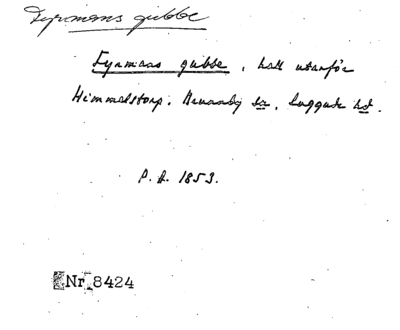 Fyrmans gubbe
Fyrmans gubbe, häll utanför
Himmelstorp. Brunnby sn, Luggude hd.
P. A. 1853.
Nr 8424